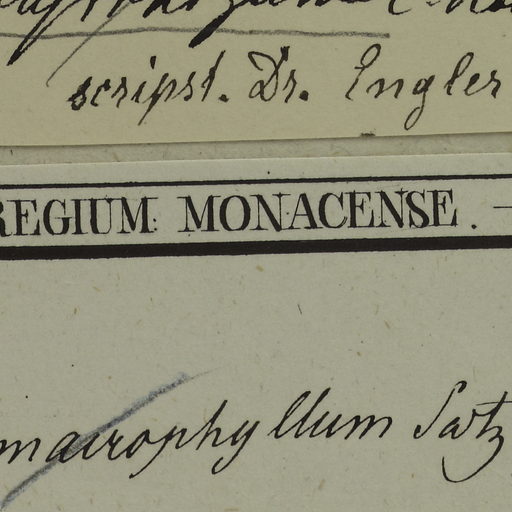 scripst. Dr. Engler
REGIUM MONACENSE. —
macrophyllum Sartz